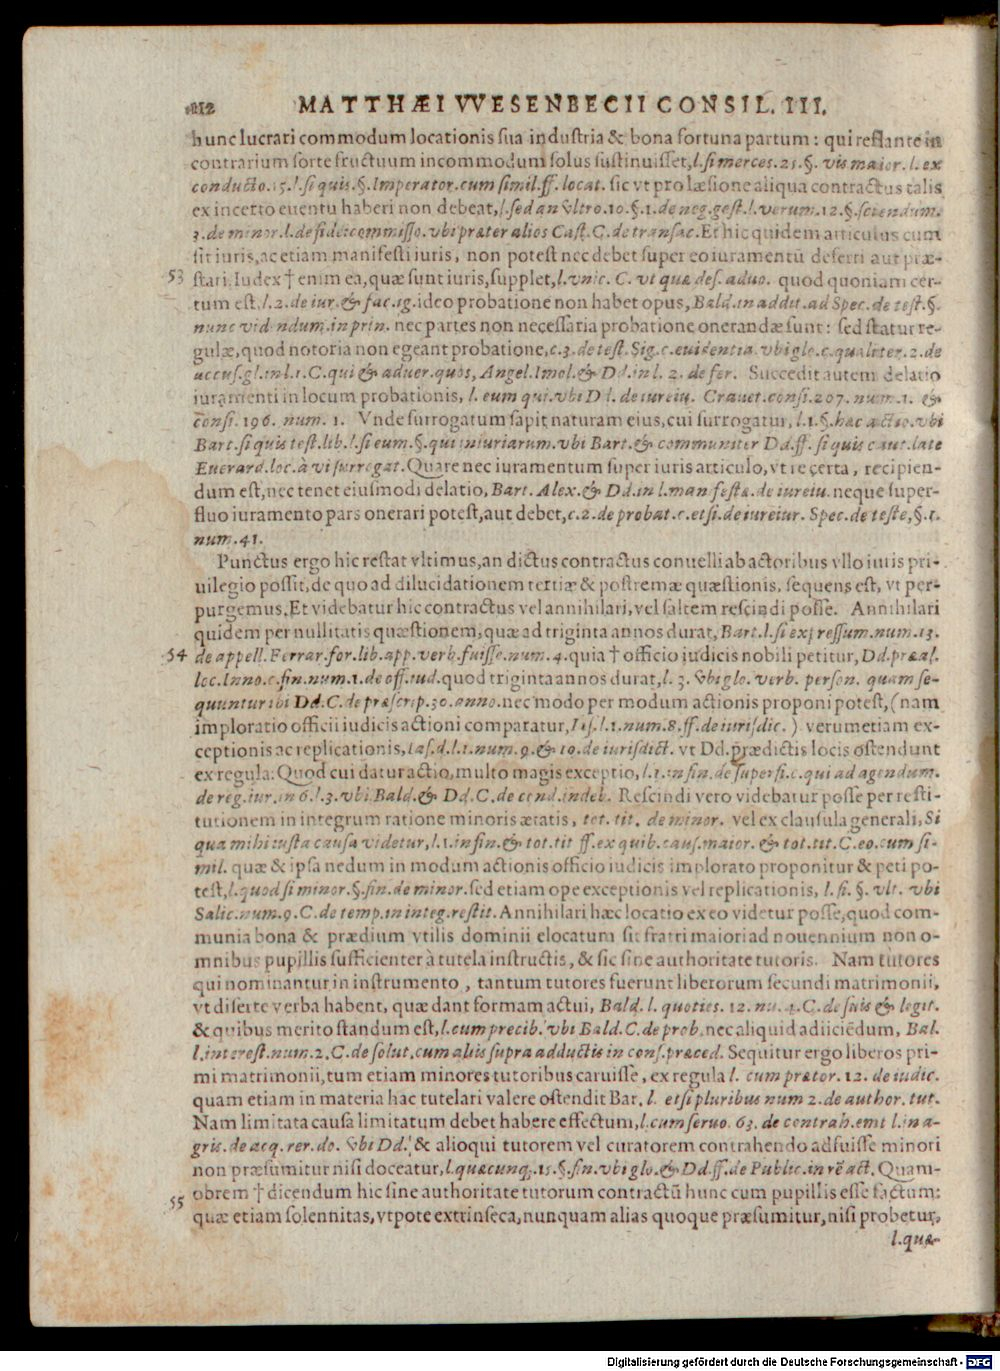 112 MATTHÆI VVESENBECII CONSIL. III.
hunc lucrari commodum locationis sua industria & bona fortuna partum: qui reflante in
contrarium sorte fructuum incommodum solus sustinuisset, l. si merces. 25. §. vis maior. l. ex
conducto. 15. l. si quis. §. Imperator. cum simil. ff. locat. sic vt pro læsione aliqua contractus talis
ex incerto euentu haberi non debeat, l. sed an vltro. 10. §. 1. de neg. gest. l. verum. 12. §. sciendum.
3. de minor. l. de fideicommisso. vbi præter alios Cast. C. de transac. Et hic quidem articulus cum
sit iuris, ac etiam manifesti iuris, non potest nec debet super eo iuramentū deferri aut præ-
53 stari. Iudex † enim ea, quæ sunt iuris, supplet, l. vnic. C. vt quæ des. aduo. quod quoniam cer-
tum est, l. 2. de iur. & fac. ig. ideo probatione non habet opus, Bald. in addit. ad Spec. de test. §.
nunc vid ndum. in prin. nec partes non necessaria probatione onerandæ sunt: sed statur re-
gulæ, quod notoria non egeant probatione, c. 3. de test. Sig. c. euidentia. vbi glo. c. qualiter. 2. de
accus. gl. in l. 1. C. qui & aduer. quos, Angel. Imol. & Dd. in l. 2. de fer. Succedit autem delatio
iuramenti in locum probationis, l. eum qui. vbi Dd. de iureiu. Crauet. consi. 207. num. 1. &
consi. 196. num. 1. Vnde surrogatum sapit naturam eius, cui surrogatur, l. 1. §. hæc actio. vbi
Bart. si quis test. lib. l. si eum. §. qui iniuriarum. vbi Bart. & communiter Dd. ff. si quis caut. late
Euerard. loc. à vi surrogat. Quare nec iuramentum super iuris articulo, vt re certa, recipien-
dum est, nec tenet eiusmodi delatio, Bart. Alex. & Dd. in l. man festæ. de iureiu. neque super-
fluo iuramento pars onerari potest, aut debet, c. 2. de probat. c. et si. de iureiur. Spec. de teste, §. 1.
num. 41.
Punctus ergo hic restat vltimus, an dictus contractus conuelli ab actoribus vllo iuris pri-
uilegio possit, de quo ad dilucidationem tertiæ & postremæ quæstionis, sequens est, vt per-
purgemus. Et videbatur hic contractus vel annihilari, vel saltem rescindi posse. Annihilari
quidem per nullitatis quæstionem, quæ ad triginta annos durat, Bart. l. si expressum. num. 13.
54 de appell. Ferrar. for. lib. app. verb. fuisse. num. 4. quia † officio iudicis nobili petitur, Dd. præal.
loc. Inno. c. fin. num. 1. de off. iud. quod triginta annos durat, l. 3. vbi glo. verb. person. quam se-
quuntur ibi Dd. C. de præscrip. 30. anno. nec modo per modum actionis proponi potest, (nam
imploratio officii iudicis actioni comparatur, Ias. l. 1. num. 8. ff. de iurisdic.) verumetiam ex-
ceptionis ac replicationis, Ias. d. l. 1. num. 9. & 10. de iurisdict. vt Dd. prædictis locis ostendunt
ex regula: Quod cui datur actio, multo magis exceptio, l. 1. in fin. de superfi. c. qui ad agendum.
de reg. iur. in 6. l. 3. vbi Bald. & Dd. C. de cond. indeb. Rescindi vero videbatur posse per resti-
tutionem in integrum ratione minoris ætatis, tot. tit. de minor. vel ex clausula generali, Si
qua mihi iusta causa videtur, l. 1. in fin. & tot. tit ff. ex quib. caus. maior. & tot. tit. C. eo. cum si-
mil. quæ & ipsa nedum in modum actionis officio iudicis implorato proponitur & peti po-
test, l. quod si minor. §. fin. de minor. sed etiam ope exceptionis vel replicationis, l. si. §. vlt. vbi
Salic. num. 9. C. de temp. in integ. restit. Annihilari hæc locatio ex eo videtur posse, quod com-
munia bona & prædium vtilis dominii elocatum sit fratri maiori ad nouennium non o-
mnibus pupillis sufficienter à tutela instructis, & sic sine authoritate tutoris. Nam tutores
qui nominantur in instrumento, tantum tutores fuerunt liberorum secundi matrimonii,
vt diserte verba habent, quæ dant formam actui, Bald. l. quoties. 12. nu. 4. C. de suis & legit.
& quibus merito standum est, l. cum precib. vbi Bald. C. de prob. nec aliquid adiiciēdum, Bal.
l. interest. num. 2. C. de solut. cum aliis supra adductis in cons. præced. Sequitur ergo liberos pri-
mi matrimonii, tum etiam minores tutoribus caruisse, ex regula l. cum prætor. 12. de iudic.
quam etiam in materia hac tutelari valere ostendit Bar. l. etsi pluribus num 2. de author. tut.
Nam limitata causa limitatum debet habere effectum, l. cum seruo. 63. de contrah. emt l. in a-
gris. de acq. rer. do. vbi Dd. & alioqui tutorem vel curatorem contrahendo adfuisse minori
non præsumitur nisi doceatur, l. quæcunq;. 15. §. fin. vbi glo. & Dd. ff. de Public. in rē act. Quam-
55 obrem † dicendum hic sine authoritate tutorum contractū hunc cum pupillis esse factum:
quæ etiam solennitas, vtpote extrinseca, nunquam alias quoque præsumitur, nisi probetur,
l. quæ-
Digitalisierung gefördert durch die Deutsche Forschungsgemeinschaft - DFG